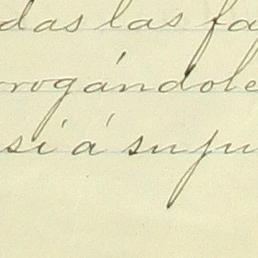 das las fa
rrogándole
si á su ju